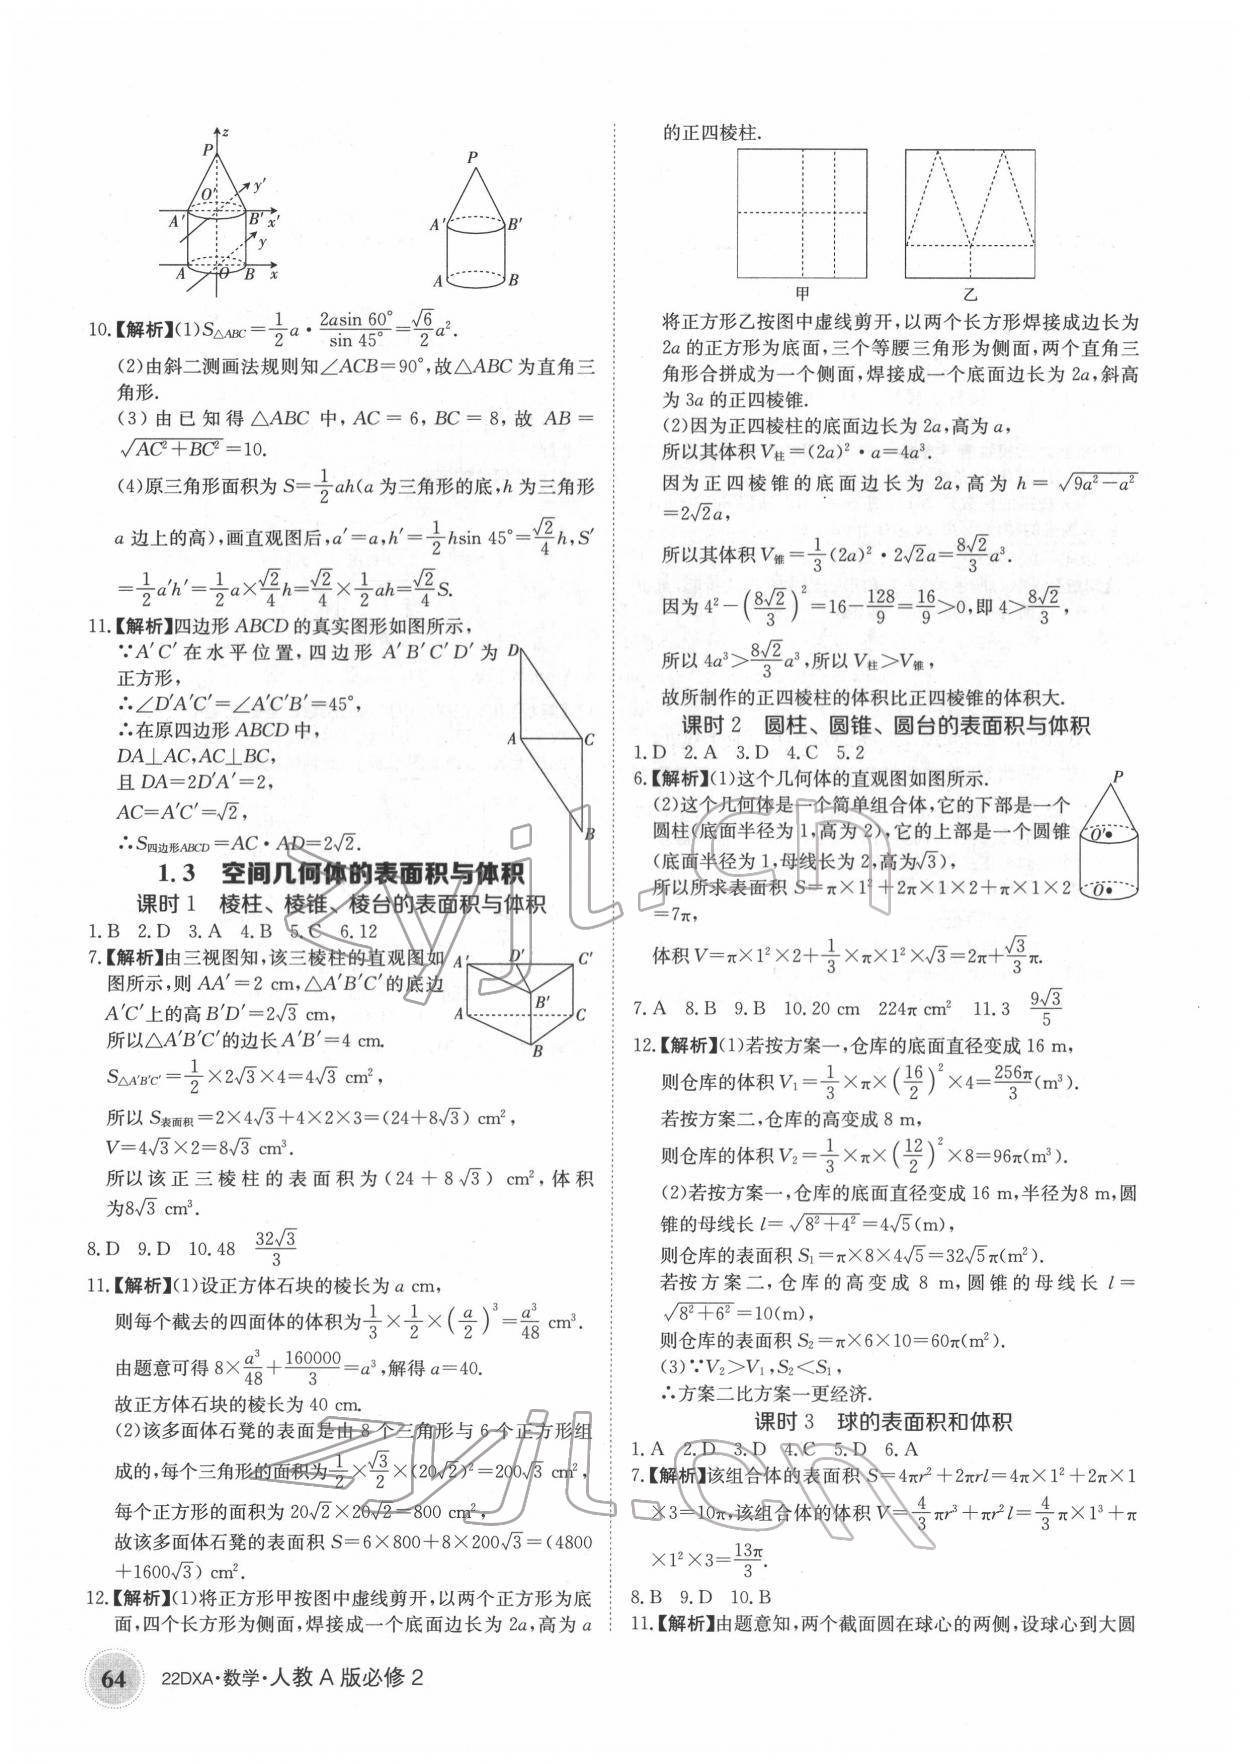 z
P
O′
y′
A′
B′
x′
y
A
O
B
x
P
A′
B′
A
B
10.【解析】(1)S△ABC=1/2a·2asin 60°/sin 45°=√6/2a².
(2)由斜二测画法规则知∠ACB=90°,故△ABC为直角三
角形.
(3)由已知得△ABC中,AC=6,BC=8,故AB=
√(AC²+BC²)=10.
(4)原三角形面积为S=1/2ah(a为三角形的底,h为三角形
a边上的高),画直观图后,a′=a,h′=1/2hsin 45°=√2/4h,S′
=1/2a′h′=1/2a×√2/4h=√2/4×1/2ah=√2/4S.
11.【解析】四边形ABCD的真实图形如图所示,
∵A′C′在水平位置,四边形A′B′C′D′为
正方形,
∴∠D′A′C′=∠A′C′B′=45°,
∴在原四边形ABCD中,
DA⊥AC,AC⊥BC,
且DA=2D′A′=2,
AC=A′C′=√2,
∴S四边形ABCD=AC·AD=2√2.
D
A
C
B
1.3 空间几何体的表面积与体积
课时1 棱柱、棱锥、棱台的表面积与体积
1.B 2.D 3.A 4.B 5.C 6.12
7.【解析】由三视图知,该三棱柱的直观图如
图所示,则AA′=2 cm,△A′B′C′的底边
A′C′上的高B′D′=2√3 cm,
所以△A′B′C′的边长A′B′=4 cm.
S△A′B′C′=1/2×2√3×4=4√3 cm²,
所以S表面积=2×4√3+4×2×3=(24+8√3) cm²,
V=4√3×2=8√3 cm³.
所以该正三棱柱的表面积为(24+8√3) cm²,体积
为8√3 cm³.
A′
D′
C′
B′
A
C
B
8.D 9.D 10.48 32√3/3
11.【解析】(1)设正方体石块的棱长为a cm,
则每个截去的四面体的体积为1/3×1/2×(a/2)³=a³/48 cm³.
由题意可得8×a³/48+160000/3=a³,解得a=40.
故正方体石块的棱长为40 cm.
(2)该多面体石凳的表面是由8个三角形与6个正方形组
成的,每个三角形的面积为1/2×√3/2×(20√2)²=200√3 cm²,
每个正方形的面积为20√2×20√2=800 cm²,
故该多面体石凳的表面积S=6×800+8×200√3=(4800
+1600√3) cm².
12.【解析】(1)将正方形甲按图中虚线剪开,以两个正方形为底
面,四个长方形为侧面,焊接成一个底面边长为2a,高为a
64
22DXA·数学·人教A版必修2
的正四棱柱.
甲
乙
将正方形乙按图中虚线剪开,以两个长方形焊接成边长为
2a的正方形为底面,三个等腰三角形为侧面,两个直角三
角形合拼成为一个侧面,焊接成一个底面边长为2a,斜高
为3a的正四棱锥.
(2)因为正四棱柱的底面边长为2a,高为a,
所以其体积V柱=(2a)²·a=4a³.
因为正四棱锥的底面边长为2a,高为h=√(9a²-a²)
=2√2a,
所以其体积V锥=1/3(2a)²·2√2a=8√2/3a³.
因为4²-(8√2/3)²=16-128/9=16/9>0,即4>8√2/3,
所以4a³>8√2/3a³,所以V柱>V锥,
故所制作的正四棱柱的体积比正四棱锥的体积大.
课时2 圆柱、圆锥、圆台的表面积与体积
1.D 2.A 3.D 4.C 5.2
6.【解析】(1)这个几何体的直观图如图所示.
(2)这个几何体是一个简单组合体,它的下部是一个
圆柱(底面半径为1,高为2),它的上部是一个圆锥
(底面半径为1,母线长为2,高为√3),
所以所求表面积S=π×1²+2π×1×2+π×1×2
=7π,
体积V=π×1²×2+1/3×π×1²×√3=2π+√3/3π.
P
O′
O
7.A 8.B 9.B 10.20 cm 224π cm² 11.3 9√3/5
12.【解析】(1)若按方案一,仓库的底面直径变成16 m,
则仓库的体积V₁=1/3×π×(16/2)²×4=256π/3(m³).
若按方案二,仓库的高变成8 m,
则仓库的体积V₂=1/3×π×(12/2)²×8=96π(m³).
(2)若按方案一,仓库的底面直径变成16 m,半径为8 m,圆
锥的母线长l=√(8²+4²)=4√5(m),
则仓库的表面积S₁=π×8×4√5=32√5π(m²).
若按方案二,仓库的高变成8 m,圆锥的母线长l=
√(8²+6²)=10(m),
则仓库的表面积S₂=π×6×10=60π(m²).
(3)∵V₂>V₁,S₂<S₁,
∴方案二比方案一更经济.
课时3 球的表面积和体积
1.A 2.D 3.D 4.C 5.D 6.A
7.【解析】该组合体的表面积S=4πr²+2πrl=4π×1²+2π×1
×3=10π,该组合体的体积V=4/3πr³+πr²l=4/3π×1³+π
×1²×3=13π/3.
8.B 9.D 10.B
11.【解析】由题意知,两个截面圆在球心的两侧,设球心到大圆
zyjl.cn
zyjl.cn